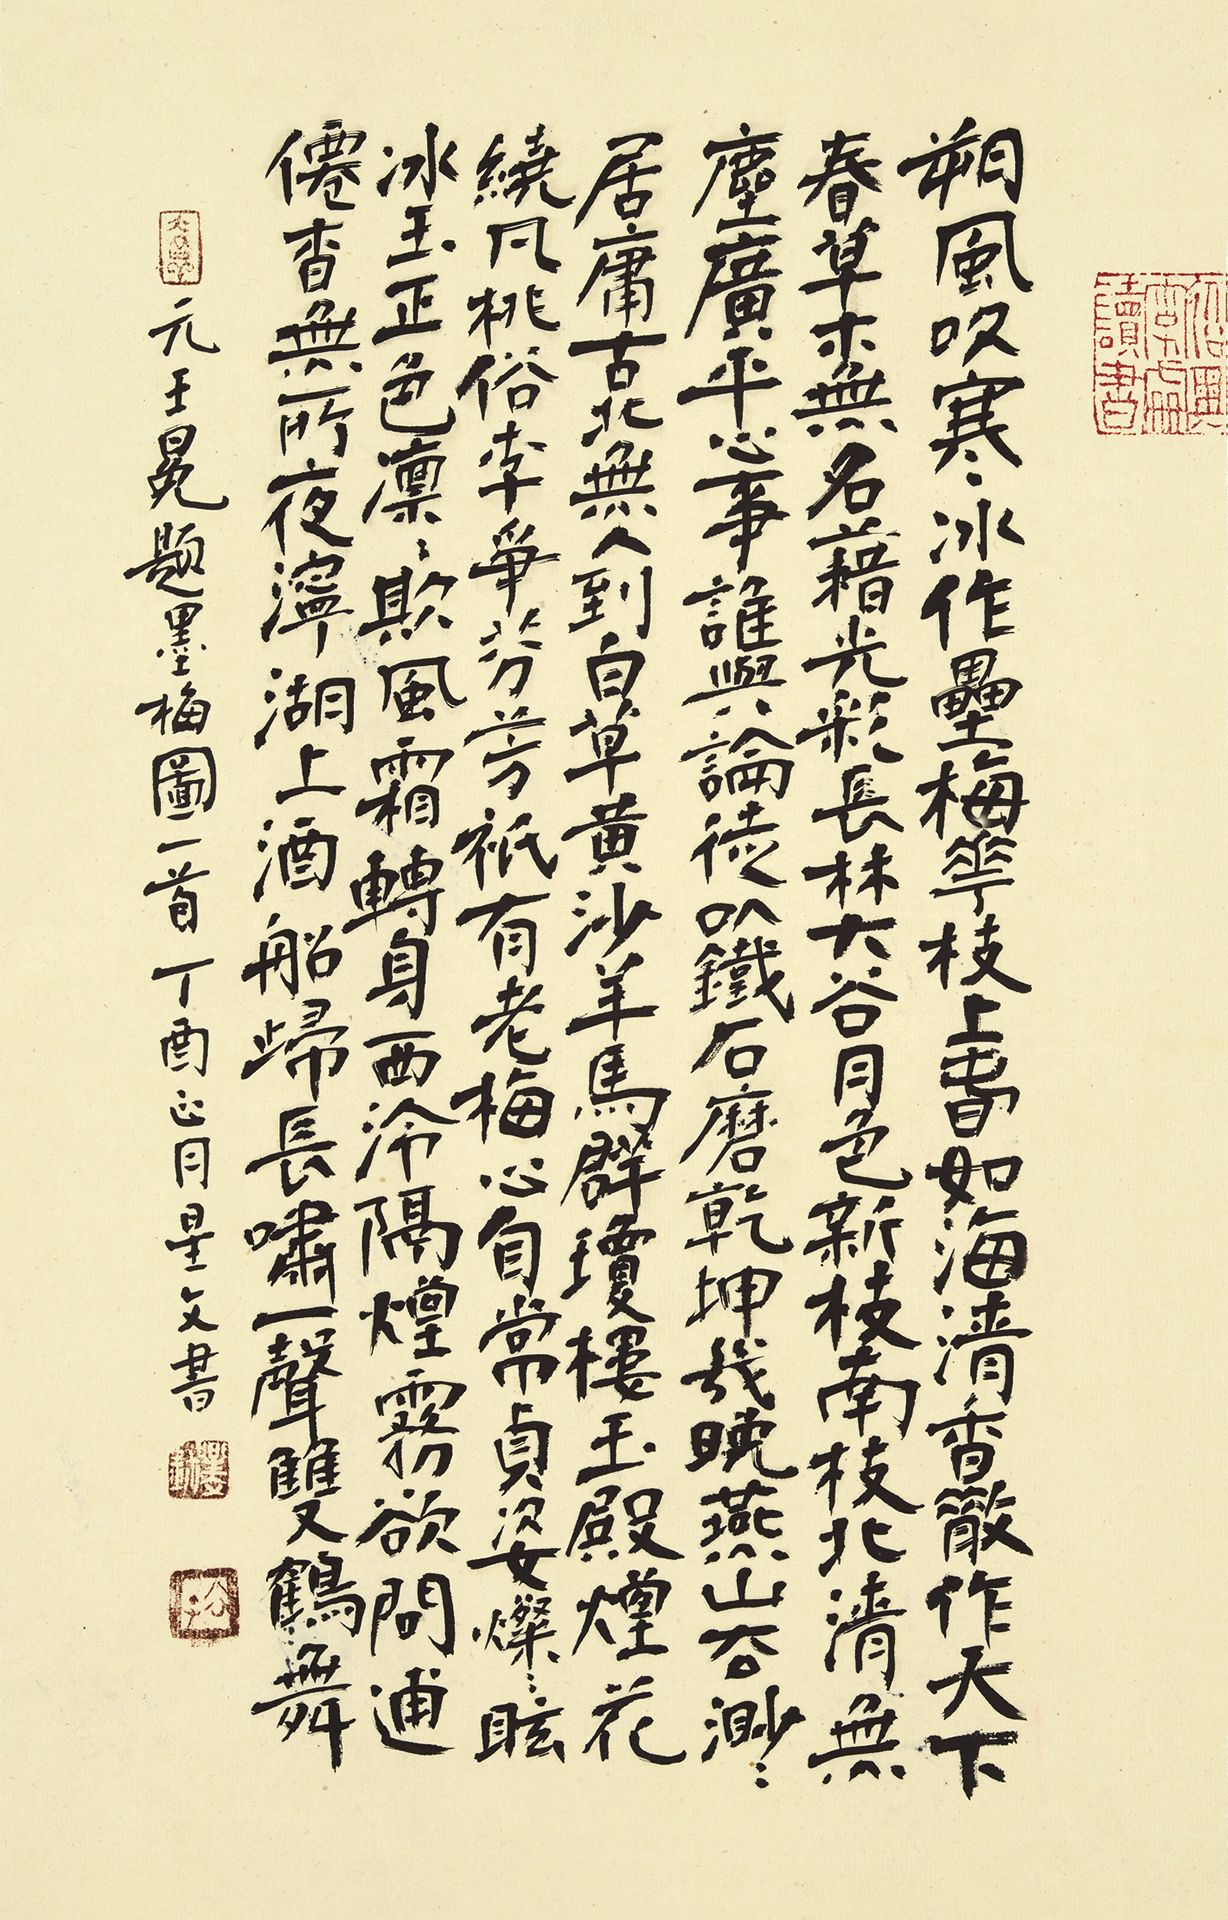 朔風吹寒〻冰作壘梅華枝上春如海清香散作天下
春草木無名藉光彩長林大谷月色新枝南枝北清無
塵廣平心事誰與論徒以鐵石磨乾坤歲晚燕山谷渺〻
居庸古北無人到白草黃沙羊馬群瓊樓玉殿煙花
繞凡桃俗李爭芬芳祇有老梅心自常貞姿燦〻眩
冰玉正色凜〻欺風霜轉身西泠隔煙霧欲問逋
僊杳無所夜濘湖上酒船歸長嘯一聲雙鶴舞
元王冕題墨梅圖一首丁酉正月星文書
讀書